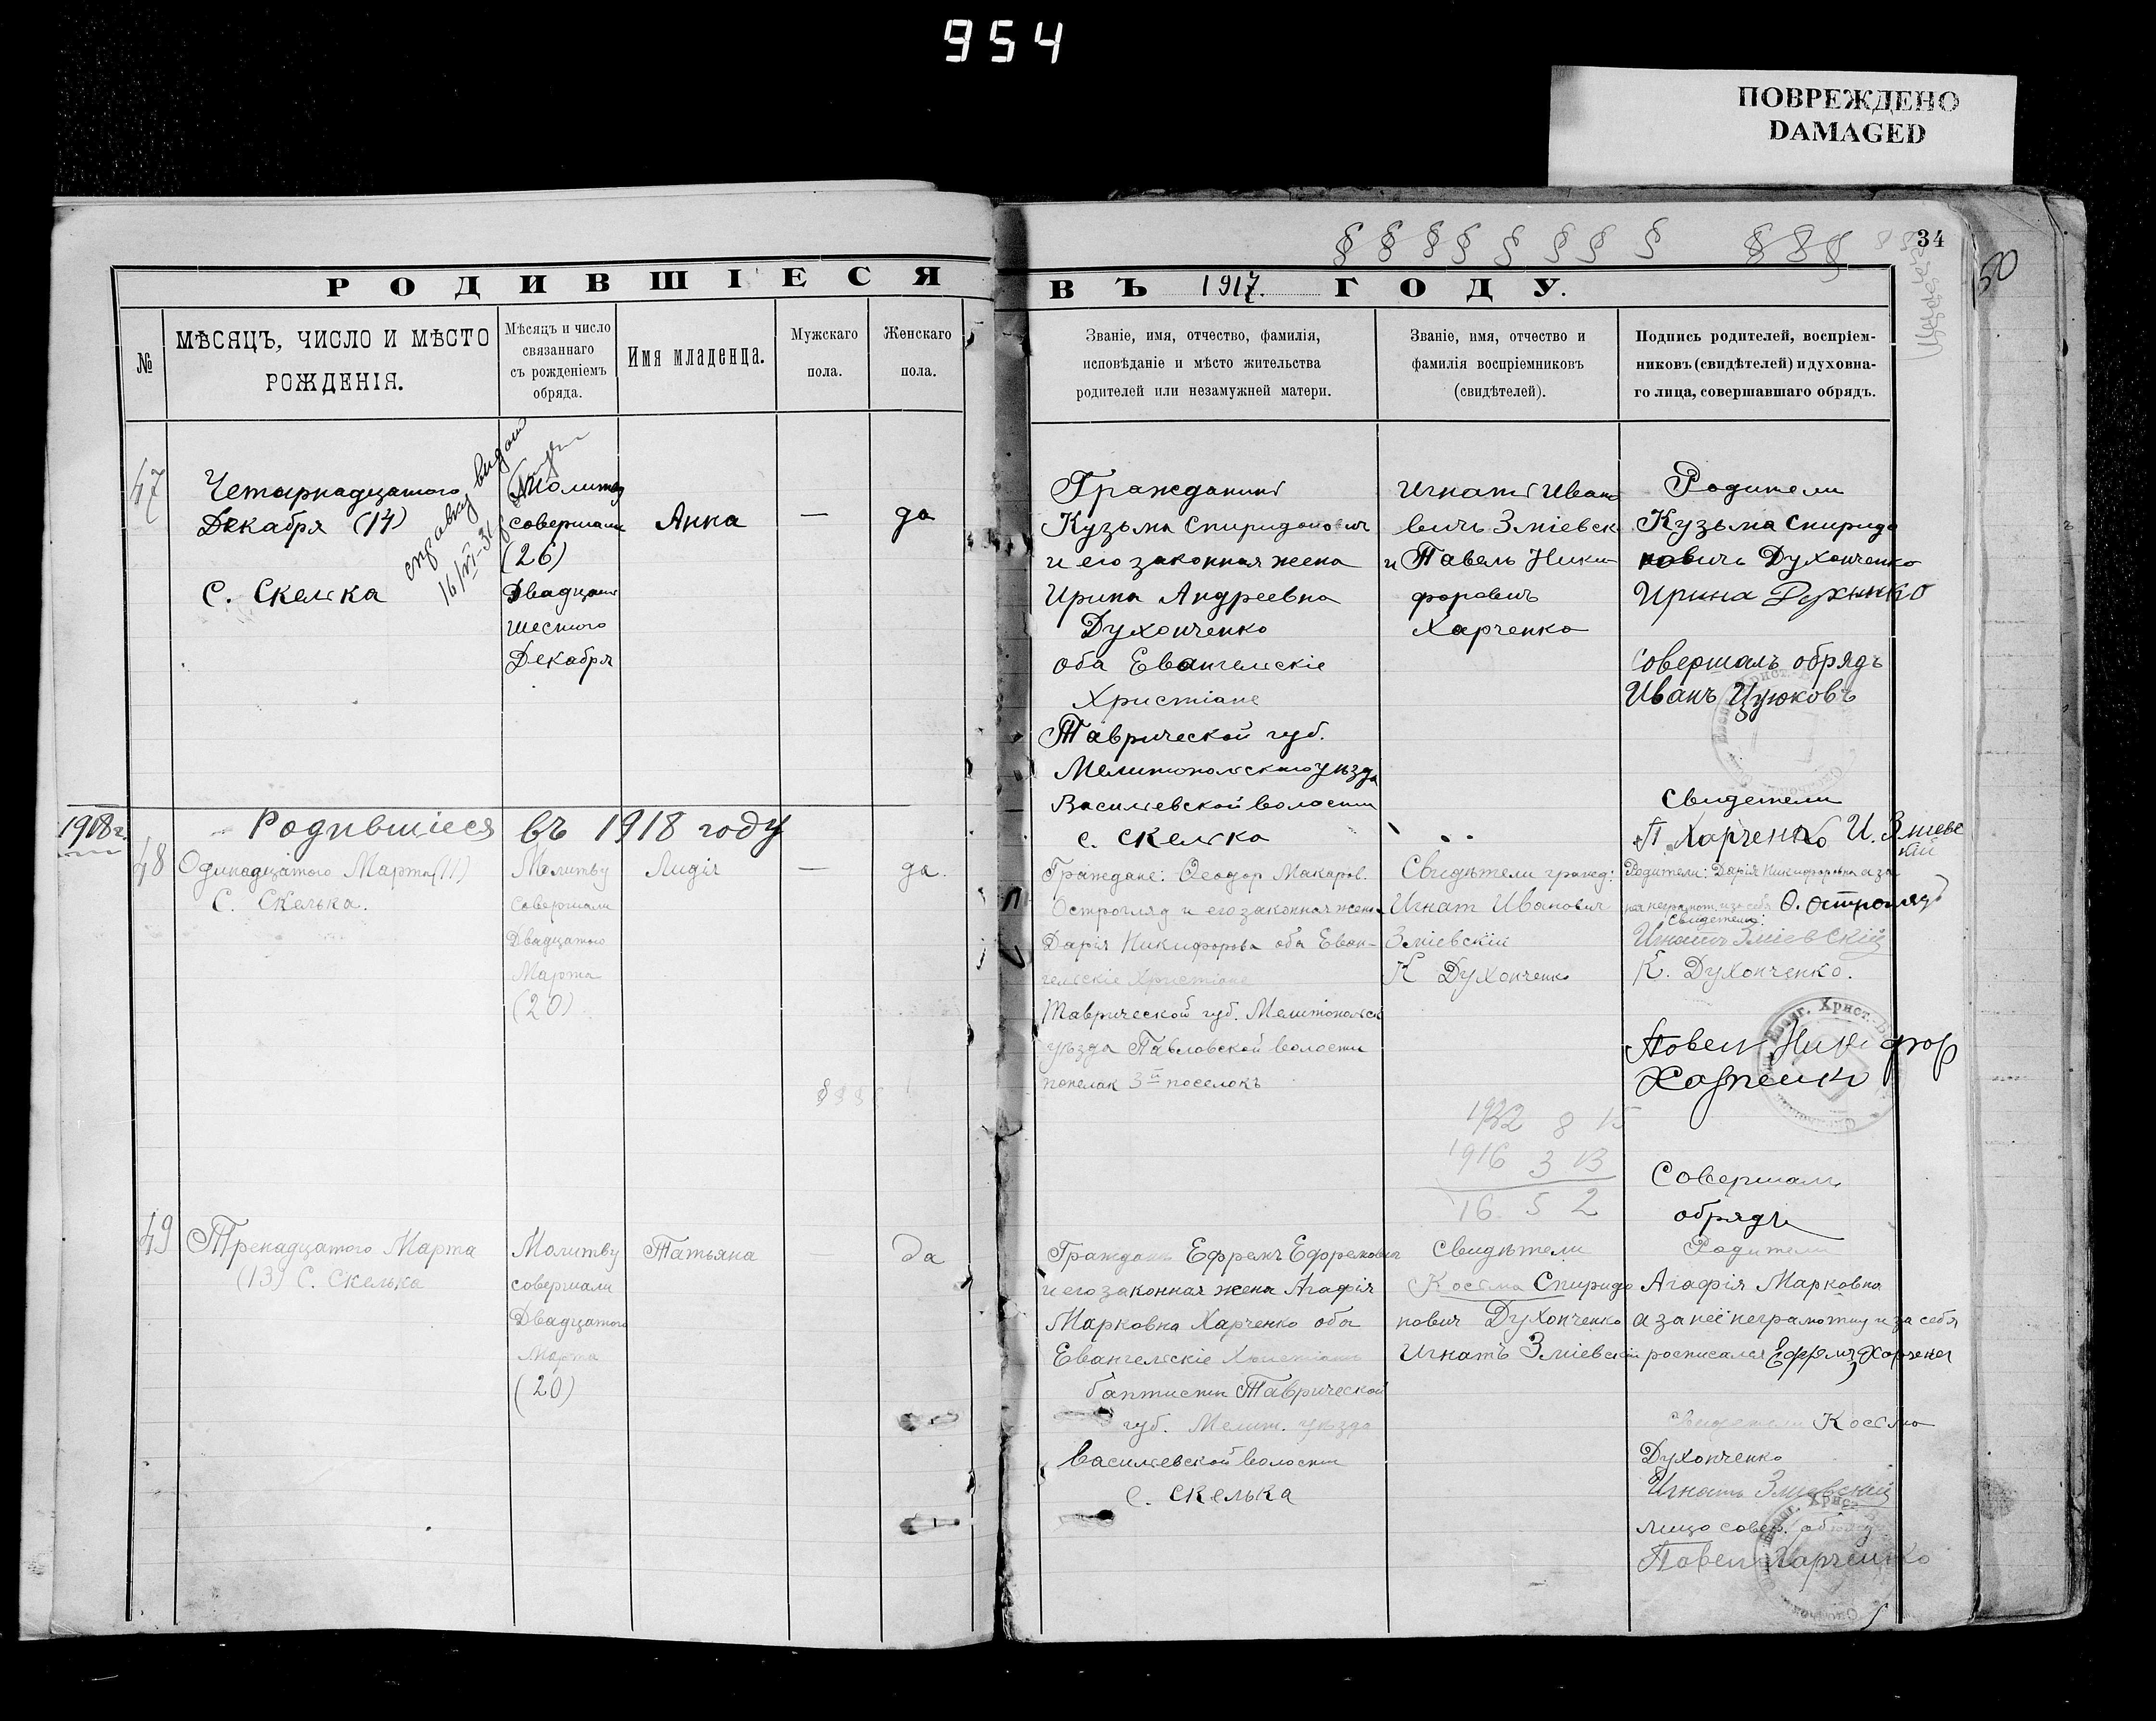 954
ПОВРЕЖДЕНО
DAMAGED
34
50
РОДИВШІЕСЯ ВЪ 1917. ГОДУ.
№
МѢСЯЦЪ, ЧИСЛО И МѢСТО
РОЖДЕНІЯ.
Мѣсяцъ и число
связаннаго
съ рожденіемъ
обряда.
Имя младенца.
Мужскаго
пола.
Женскаго
пола.
Званіе, имя, отчество, фамилія,
исповѣданіе и мѣсто жительства
родителей или незамужней матери.
Званіе, имя, отчество и
фамилія воспріемниковъ
(свидѣтелей).
Подпись родителей, воспріем-
никовъ (свидѣтелей) и духовна-
го лица, совершавшаго обрядъ.
47
Четырнадцатого
Декабря (14)
С. Скелька
справку выдал
16/VI-31
Молитву
совершали
(26)
Двадцать
шестого
Декабря
Анна
—
да
Гражданинъ
Кузьма Спиридонович
и его законная жена
Ирина Андреевна
Духонченко
оба Евангельскіе
Христіане
Таврической губ.
Мелитопольского уѣзда
Васильевской волости
с. Скелька
Игнатъ Ивано
вичъ Зміевск
и Павелъ Ники
форовичъ
Харченко
Родители
Кузьма Спиридо
новичъ Духонченко
Ирина
Совершалъ обрядъ
Иванъ Цуюковъ
Свидетели
П. Харченко И. Зміевс
кій
1918 г.
Родившіеся въ 1918 году
48
Одинадцатого Марта (11)
С. Скелька.
Молитву
совершали
Двадцатого
Марта
(20)
Лидія
—
да.
Граждане: Ѳеодор Макаров.
Острогляд и его законная жена
Дарія Никифорова оба Еван-
гельскіе Христіане
Таврической губ. Мелитопольск
уѣзда Павловской волости
попелак 3й поселокъ
Свидѣтели гражд:
Игнат Иванович
Зміевскій
К Духонченко
Родители: Дарія Никифоровна а за
нея неграмот. и за себя Ѳ. Острогляд
Свидетели:
Игнатъ Зміевскій
К. Духонченко.
Павел Никифор
Харченко
Совершал
обрядъ
1932 8 15
1916 3 13
16 5 2
49
Тренадцатого Марта
(13) С. Скелька
Молитву
совершали
Двадцатого
Марта
(20)
Татьяна
—
Да
Граждан Ефремъ Ефремович
и его законная жена Агафія
Марковна Харченко оба
Евангельскіе Христіане
баптисты Таврической
губ. Мелит. уѣзда
Васильевской волости
с. Скелька
Свидѣтели
Косьма Спиридо
нович Духонченко
Игнатъ Зміевскій
Родители
Агафія Марковна
а за неё неграмотну и за себя
росписался Ефремъ Харченко
Свидетели Косьма
Духонченко
Игнатъ Зміевскій
лицо совер. обряд
Павел Харченко